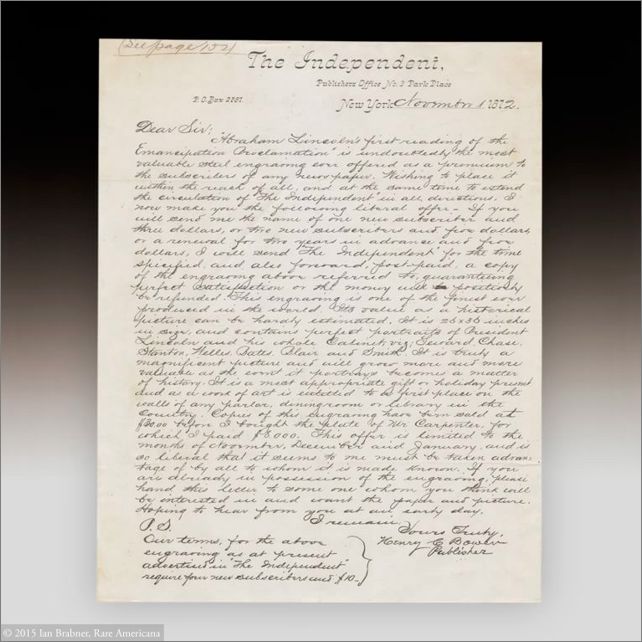 (See page 152)
The Independent,
Publishers Office No. 3 Park Place
P.O. Box 2787.
New York November 1 1872.
Dear Sir:
"Abraham Lincoln's first reading of the
Emancipation Proclamation" is undoubtedly the most
valuable steel engraving ever offered as a premium to
the subscribers of any newspaper. Wishing to place it
within the reach of all, and at the same time to extend
the circulation of The Independent in all directions. I
now make you the following liberal offer - If you
will send me the name of one new subscriber and
three dollars, or two new subscribers and five dollars,
or a renewal for two years in advance and five
dollars, I will send "The Independent" for the time
specified, and also forward, post-paid, a copy
of the engraving above referred to, guaranteeing
perfect satisfaction or the money will be positively
be refunded. This engraving is one of the finest ever
produced in the world. Its value as a historical
picture can be hardly estimated. It is 26x36 inches
in size, and contains perfect portraits of President
Lincoln and his whole Cabinet, viz; Seward, Chase,
Stanton, Welles, Bates, Blair and Smith. It is truly a
magnificent picture and will grow more and more
valuable as the event it portrays becomes a matter
of history. It is a most appropriate gift or holiday present
and as a work of art is entitled to a first place on the
walls of any parlor, diningroom or library in the
Country. Copies of this engraving have been sold at
before I bought the plate of Mr Carpenter, for
which I paid $8.000. This offer is limited to the
months of November, December and January, and is
so liberal that it seems to me must be taken advan-
tage of by all to whom it is made known. If you
are already in possession of the engraving, please
hand this letter to some one whom you think will
be interested in and want the paper and picture.
Hoping to hear from you at an early day.
I remain,
Yours Truly,
Henry C Bowen
Publisher
P.S.
Our terms, for the above
engraving as at present
advertised in "The Independent"
require four new subscribers and $10-
© 2015 Ian Brabner, Rare Americana